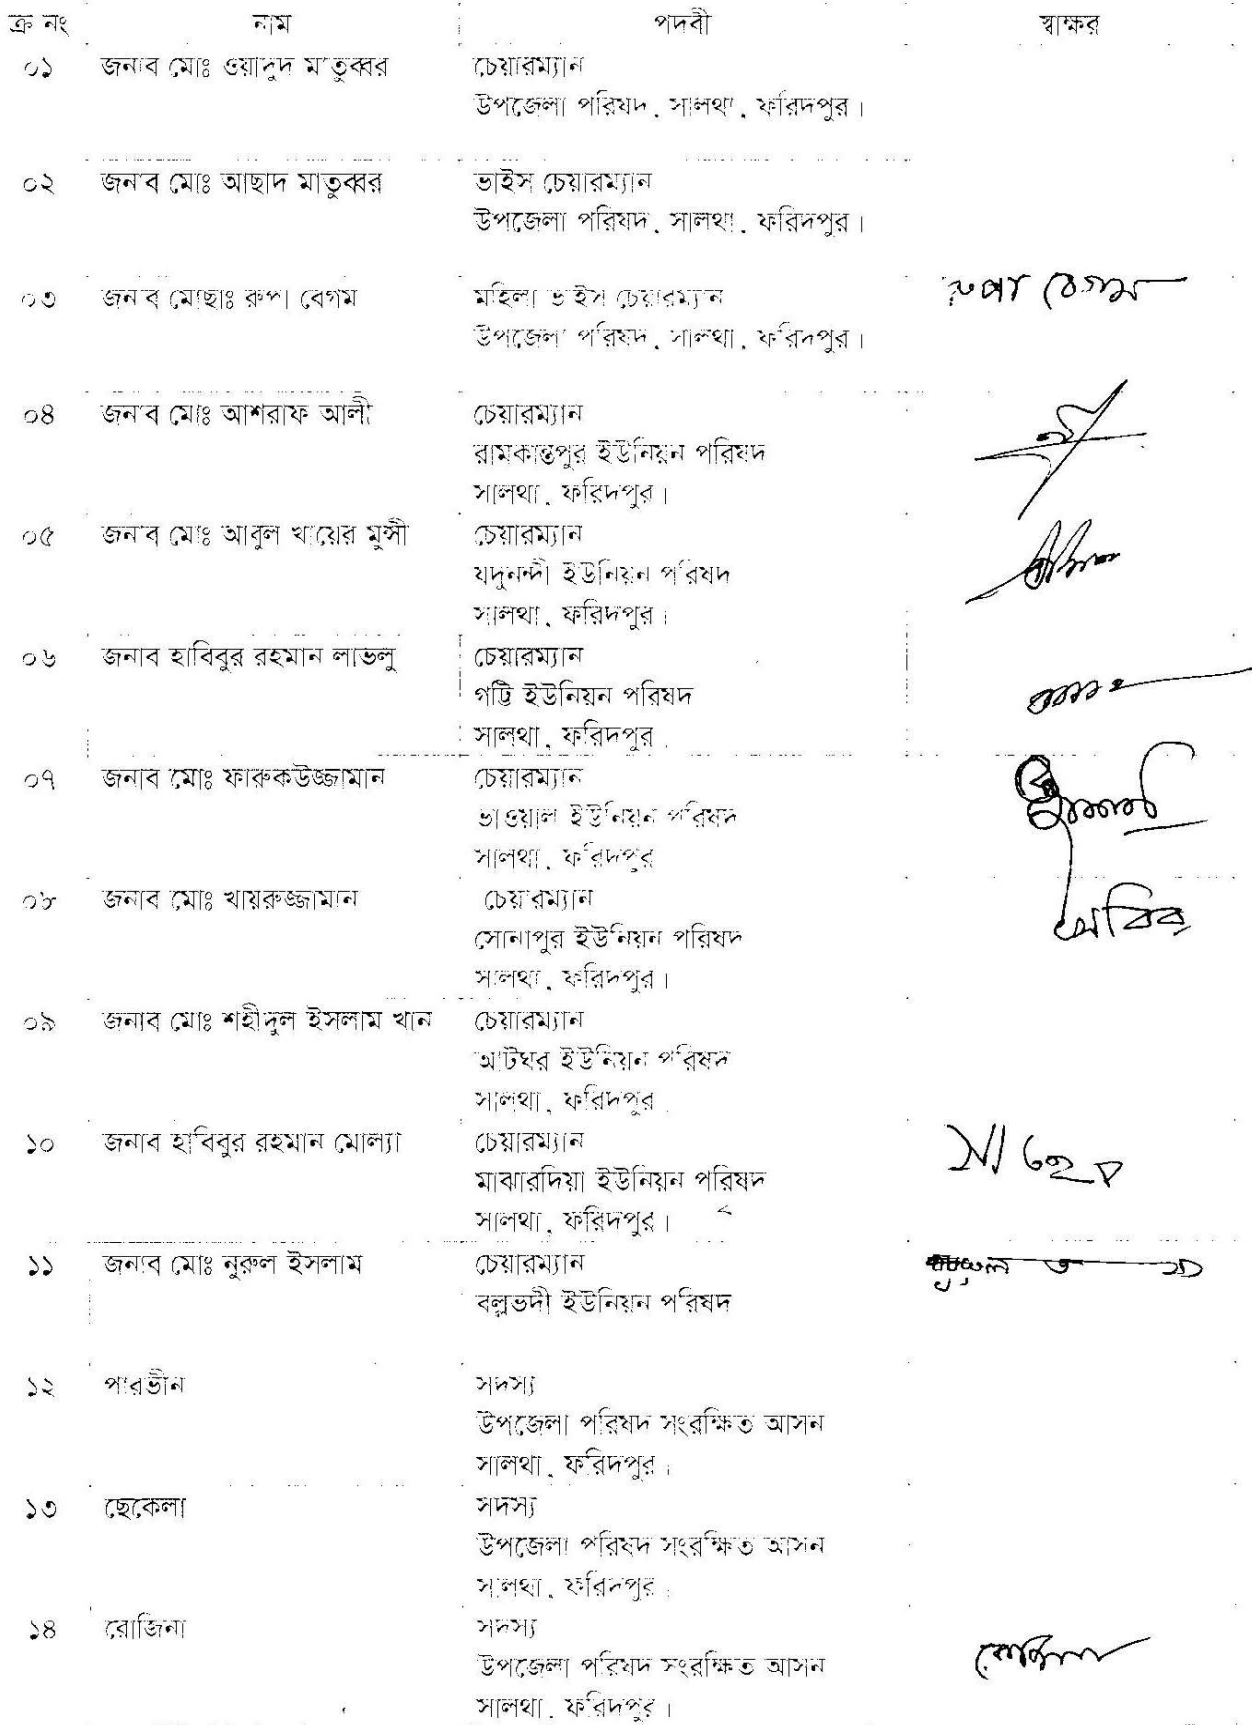 ক্র নং নাম পদবী স্বাক্ষর
০১ জনাব মোঃ ওয়াদুদ মাতুব্বর চেয়ারম্যান
উপজেলা পরিষদ, সালথা, ফরিদপুর।
০২ জনাব মোঃ আছাদ মাতুব্বর ভাইস চেয়ারম্যান
উপজেলা পরিষদ, সালথা, ফরিদপুর।
০৩ জনাব মোছাঃ রুপা বেগম মহিলা ভাইস চেয়ারম্যান রুপা বেগম
উপজেলা পরিষদ, সালথা, ফরিদপুর।
০৪ জনাব মোঃ আশরাফ আলী চেয়ারম্যান
রামকান্তপুর ইউনিয়ন পরিষদ
সালথা, ফরিদপুর।
০৫ জনাব মোঃ আবুল খায়ের মুন্সী চেয়ারম্যান
যদুনন্দী ইউনিয়ন পরিষদ
সালথা, ফরিদপুর।
০৬ জনাব হাবিবুর রহমান লাভলু চেয়ারম্যান
গট্টি ইউনিয়ন পরিষদ
সালথা, ফরিদপুর
০৭ জনাব মোঃ ফারুকউজ্জামান চেয়ারম্যান
ভাওয়াল ইউনিয়ন পরিষদ
সালথা, ফরিদপুর
০৮ জনাব মোঃ খায়রুজ্জামান চেয়ারম্যান
সোনাপুর ইউনিয়ন পরিষদ
সালথা, ফরিদপুর।
০৯ জনাব মোঃ শহীদুল ইসলাম খান চেয়ারম্যান
আটঘর ইউনিয়ন পরিষদ
সালথা, ফরিদপুর
১০ জনাব হাবিবুর রহমান মোল্যা চেয়ারম্যান
মাঝারদিয়া ইউনিয়ন পরিষদ
সালথা, ফরিদপুর।
১১ জনাব মোঃ নুরুল ইসলাম চেয়ারম্যান
বল্লভদী ইউনিয়ন পরিষদ
১২ পারভীন সদস্য
উপজেলা পরিষদ সংরক্ষিত আসন
সালথা, ফরিদপুর।
১৩ ছেকেলা সদস্য
উপজেলা পরিষদ সংরক্ষিত আসন
সালথা, ফরিদপুর।
১৪ রোজিনা সদস্য
উপজেলা পরিষদ সংরক্ষিত আসন রোজিনা
সালথা, ফরিদপুর।